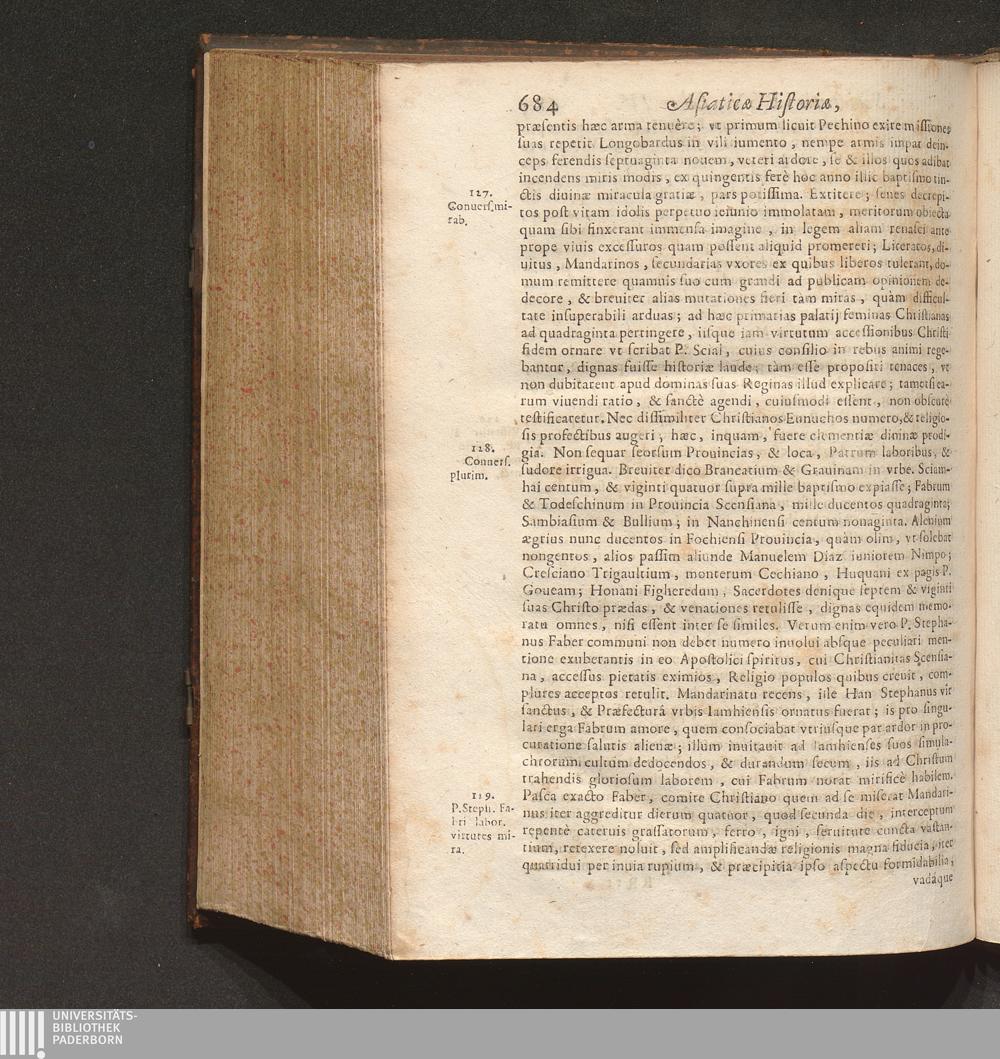 684 Aſiaticæ Hiſtoriæ,
præſentis hæc arma tenuère; vt primum licuit Pechino exire miſſiones
ſuas repetit Longobardus in vili iumento, nempe armis impar dein-
ceps ferendis ſeptuaginta nouem, veteri ardore, ſe & illos quos adibat
incendens miris modis, ex quingentis ferè hoc anno illic baptiſmo tin-
127.
Conuerſ. mi-
rab.
ctis diuinæ miracula gratiæ, pars potiſſima. Extitere; ſenes decrepi-
tos poſt vitam idolis perpetuo ieiunio immolatam, meritorum obiecta
quam ſibi finxerant immenſa imagine, in legem aliam renaſci ante
prope viuis exceſſuros quam poſſent aliquid promereri; Literatos, di-
uitus, Mandarinos, ſecundarias vxores ex quibus liberos tulerant, do-
mum remittere quamuis ſuo cum grandi ad publicam opinionem de-
decore, & breuiter alias mutationes fieri tàm miras, quàm difficul-
tate inſuperabili arduas; ad hæc primarias palatij feminas Chriſtianas
ad quadraginta pertingere, iiſque iam virtutum acceſſionibus Chriſti
fidem ornare vt ſcribat P. Scial, cuius conſilio in rebus animi rege-
bantur, dignas fuiſſe hiſtoriæ laude; tàm eſſe propoſiti tenaces, vt
non dubitarent apud dominas ſuas Reginas illud explicare; tametſi ea-
rum viuendi ratio, & ſanctè agendi, cuiuſmodi eſſent, non obſcurè
teſtificaretur. Nec diſſimiliter Chriſtianos Eunuchos numero, & religio-
ſis profectibus augeri, hæc, inquam, fuere clementiæ diuinæ prodi-
128.
Conuerſ.
plurim.
gia. Non ſequar ſeorſum Prouincias, & loca, Patrum laboribus, &
ſudore irrigua. Breuiter dico Brancatium & Grauinam in vrbe. Sciam-
hai centum, & viginti quatuor ſupra mille baptiſmo expiaſſe; Fabrum
& Todeſchinum in Prouincia Scenſiana, mille ducentos quadraginta;
Sambiaſium & Bullium; in Nanchinenſi centum nonaginta. Alenium
ægrius nunc ducentos in Fochienſi Prouincia, quàm olim, vt ſolebat
nongentos, alios paſſim aliunde Manuelem Diaz iuniorem Nimpo;
Creſciano Trigaultium, monterum Cechiano, Huquani ex pagis P.
Goueam; Honani Figheredum, Sacerdotes denique ſeptem & viginti
ſuas Chriſto prædas, & venationes retuliſſe, dignas equidem memo-
ratu omnes, niſi eſſent inter ſe ſimiles. Verum enim vero P. Stepha-
nus Faber communi non debet numero inuolui abſque peculiari men-
tione exuberantis in eo Apoſtolici ſpiritus, cui Chriſtianitas Scenſia-
na, acceſſus pietatis eximios, Religio populos quibus creuit, com-
plures acceptos retulit. Mandarinatu recens, iſle Han Stephanus vir
ſanctus, & Præfecturâ vrbis Iamhienſis ornatus fuerat; is pro ſingu-
lari erga Fabrum amore, quem conſociabat vtriuſque par ardor in pro-
curatione ſalutis alienæ; illum inuitauit ad Iamhienſes ſuos ſimula-
chrorum cultum dedocendos, & durandum ſecum, iis ad Chriſtum
trahendis glorioſum laborem, cui Fabrum norat mirificè habilem.
119.
P. Steph. Fa-
bri labor.
virtutes mi-
ra.
Paſca exacto Faber, comite Chriſtiano quem ad ſe miſerat Mandari-
nus iter aggreditur dierum quatuor, quod ſecunda die, interceptum
repentè cateruis graſſatorum, ferro, igni, ſeruitute cuncta vaſtan-
tium, retexere noluit, ſed amplificandæ religionis magna fiducia, iter
quatridui per inuia rupium, & præcipitia ipſo aſpectu formidabilia,
vadáque
UNIVERSITÄTS-
BIBLIOTHEK
PADERBORN